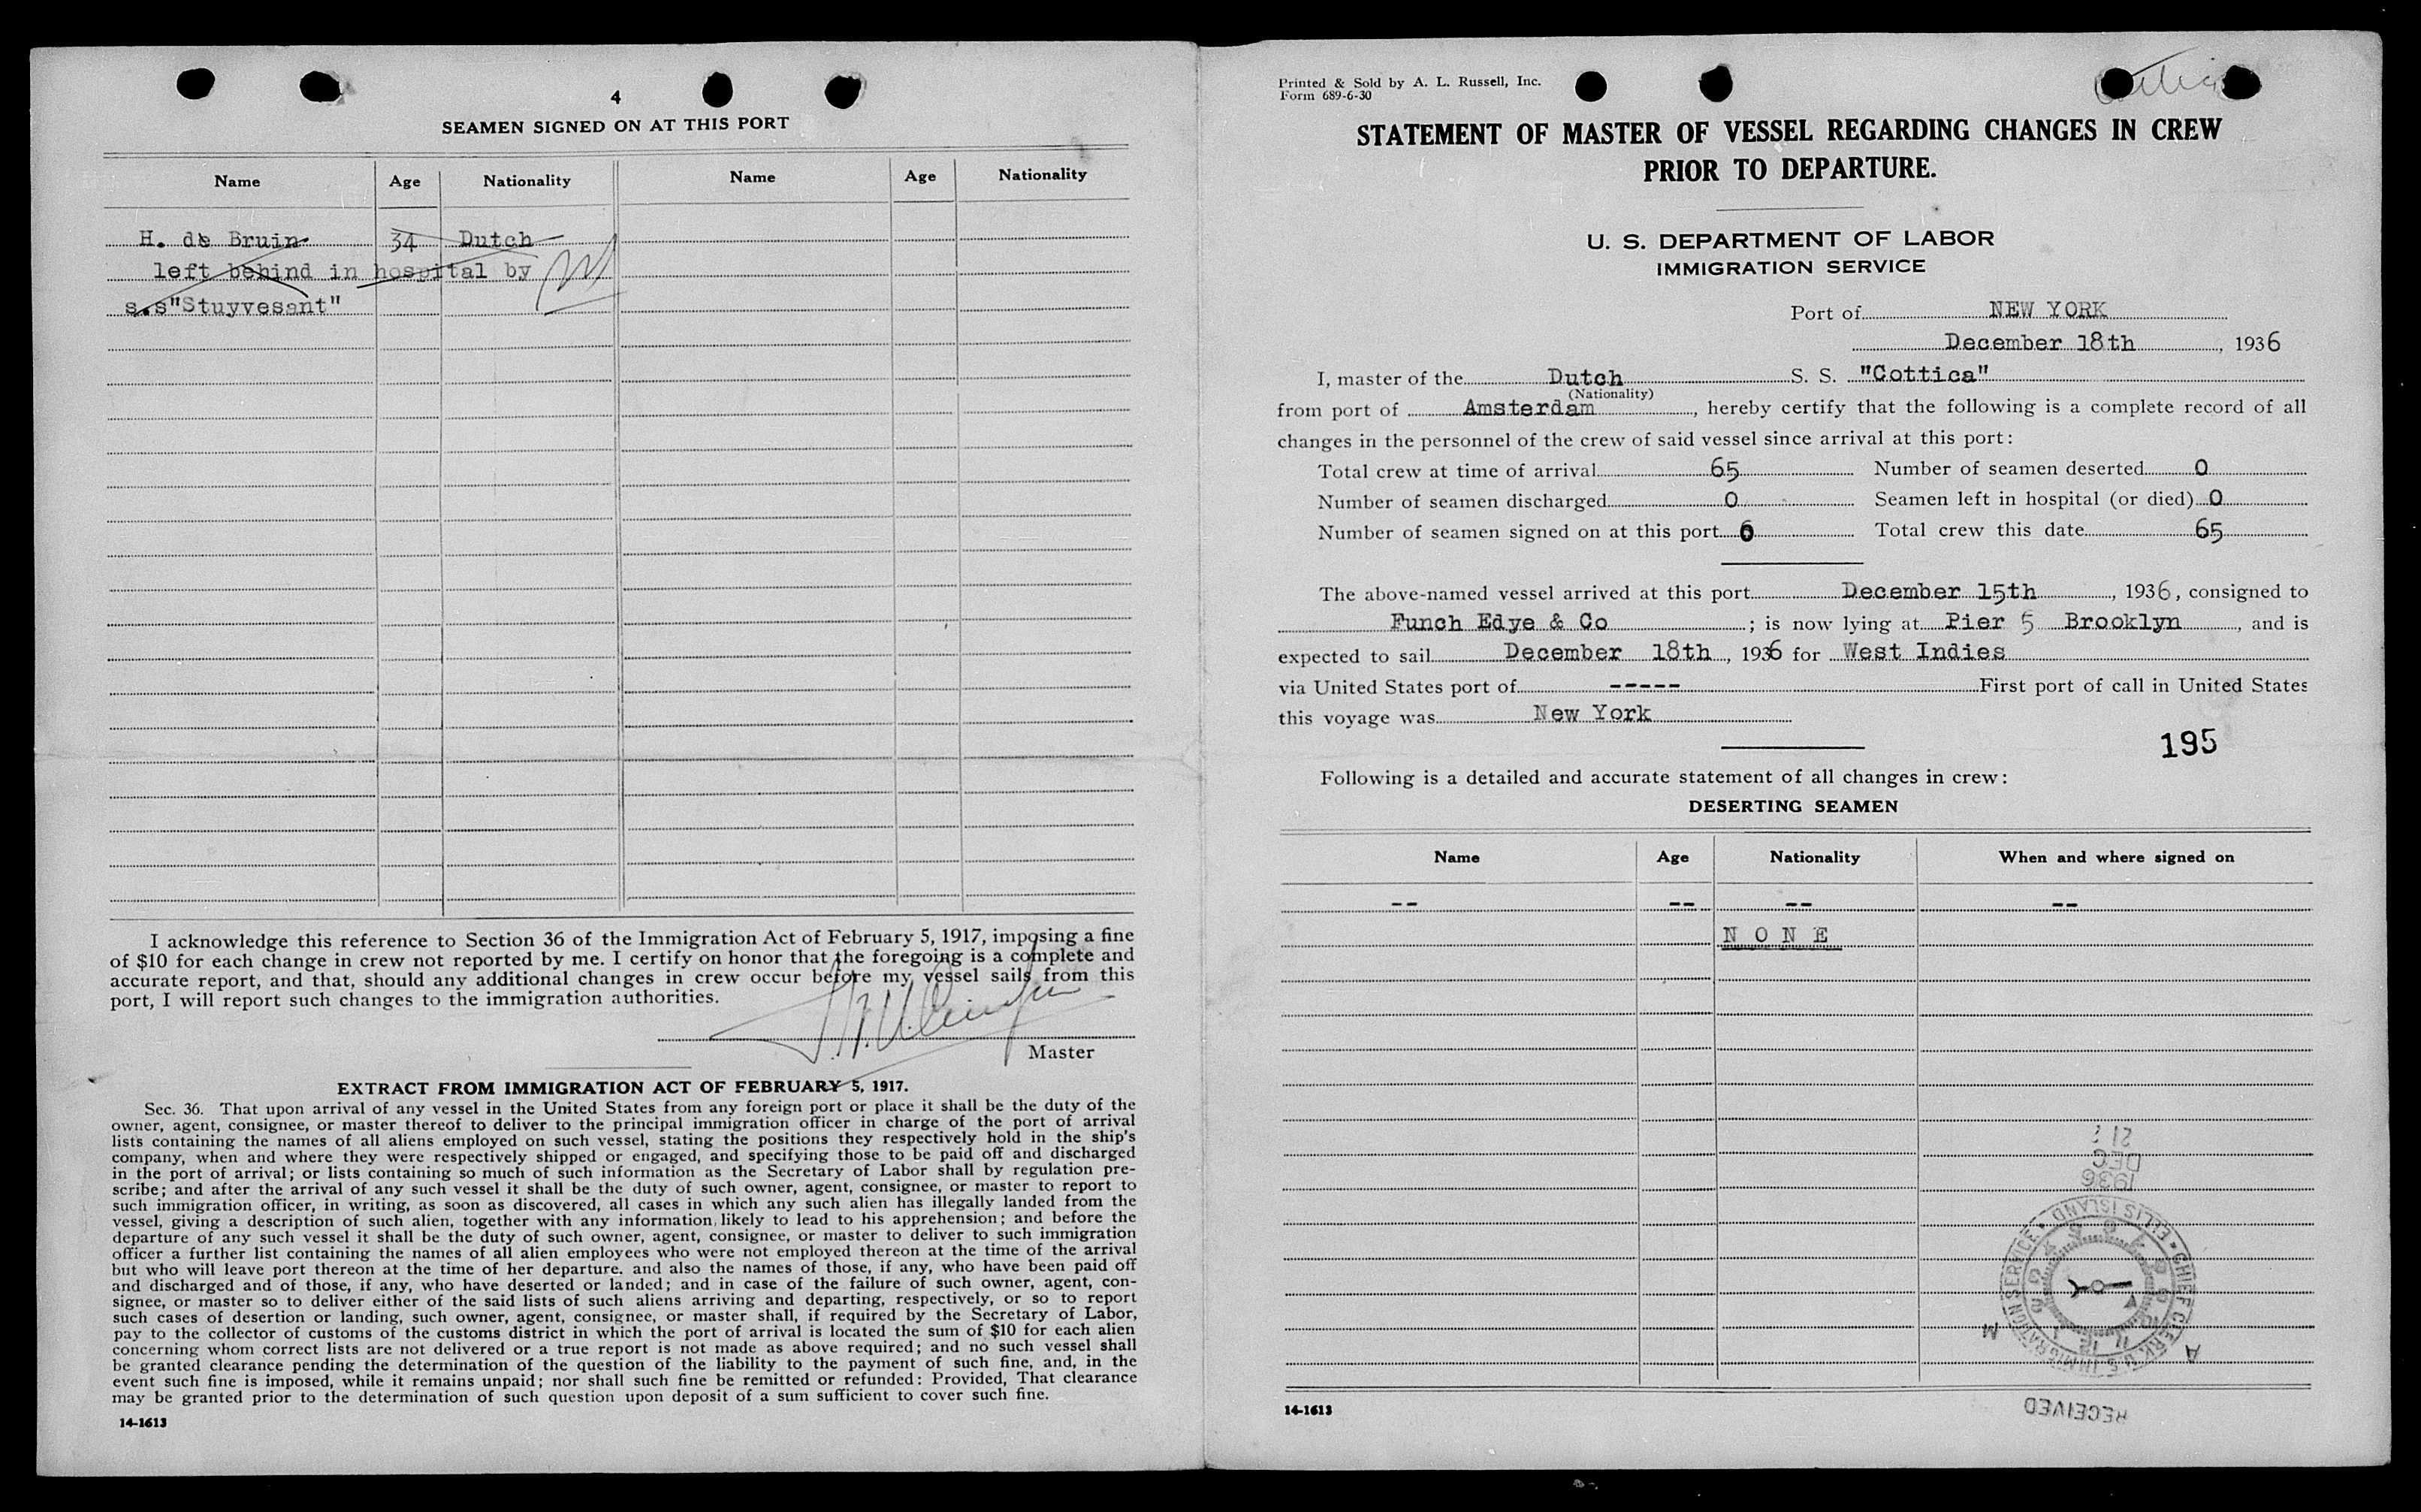 4
SEAMEN SIGNED ON AT THIS PORT
Name Age Nationality Name Age Nationality
H. de Bruin 34 Dutch
left behind in hospital by
s.s"Stuyvesant"
I acknowledge this reference to Section 36 of the Immigration Act of February 5, 1917, imposing a fine
of $10 for each change in crew not reported by me. I certify on honor that the foregoing is a complete and
accurate report, and that, should any additional changes in crew occur before my vessel sails from this
port, I will report such changes to the immigration authorities.
Master
EXTRACT FROM IMMIGRATION ACT OF FEBRUARY 5, 1917.
Sec. 36. That upon arrival of any vessel in the United States from any foreign port or place it shall be the duty of the
owner, agent, consignee, or master thereof to deliver to the principal immigration officer in charge of the port of arrival
lists containing the names of all aliens employed on such vessel, stating the positions they respectively hold in the ship's
company, when and where they were respectively shipped or engaged, and specifying those to be paid off and discharged
in the port of arrival; or lists containing so much of such information as the Secretary of Labor shall by regulation pre-
scribe; and after the arrival of any such vessel it shall be the duty of such owner, agent, consignee, or master to report to
such immigration officer, in writing, as soon as discovered, all cases in which any such alien has illegally landed from the
vessel, giving a description of such alien, together with any information likely to lead to his apprehension; and before the
departure of any such vessel it shall be the duty of such owner, agent, consignee, or master to deliver to such immigration
officer a further list containing the names of all alien employees who were not employed thereon at the time of the arrival
but who will leave port thereon at the time of her departure. and also the names of those, if any, who have been paid off
and discharged and of those, if any, who have deserted or landed; and in case of the failure of such owner, agent, con-
signee, or master so to deliver either of the said lists of such aliens arriving and departing, respectively, or so to report
such cases of desertion or landing, such owner, agent, consignee, or master shall, if required by the Secretary of Labor,
pay to the collector of customs of the customs district in which the port of arrival is located the sum of $10 for each alien
concerning whom correct lists are not delivered or a true report is not made as above required; and no such vessel shall
be granted clearance pending the determination of the question of the liability to the payment of such fine, and, in the
event such fine is imposed, while it remains unpaid; nor shall such fine be remitted or refunded: Provided, That clearance
may be granted prior to the determination of such question upon deposit of a sum sufficient to cover such fine.
14-1613
Printed & Sold by A. L. Russell, Inc.
Form 689-6-30
STATEMENT OF MASTER OF VESSEL REGARDING CHANGES IN CREW
PRIOR TO DEPARTURE.
U. S. DEPARTMENT OF LABOR
IMMIGRATION SERVICE
Port of NEW YORK
December 18th, 1936
I, master of the Dutch S. S. "Cottica"
(Nationality)
from port of Amsterdam, hereby certify that the following is a complete record of all
changes in the personnel of the crew of said vessel since arrival at this port:
Total crew at time of arrival 65 Number of seamen deserted 0
Number of seamen discharged 0 Seamen left in hospital (or died) 0
Number of seamen signed on at this port 0 Total crew this date 65
The above-named vessel arrived at this port December 15th, 1936, consigned to
Funch Edye & Co; is now lying at Pier 5 Brooklyn, and is
expected to sail December 18th, 1936 for West Indies
via United States port of ----- First port of call in United States
this voyage was New York
195
Following is a detailed and accurate statement of all changes in crew:
DESERTING SEAMEN
Name Age Nationality When and where signed on
-- -- -- --
N O N E
DEC
1936
CHIEF CLERK U.S. IMMIGRATION SERVICE • ELLIS ISLAND •
A M
RECEIVED
14-1613